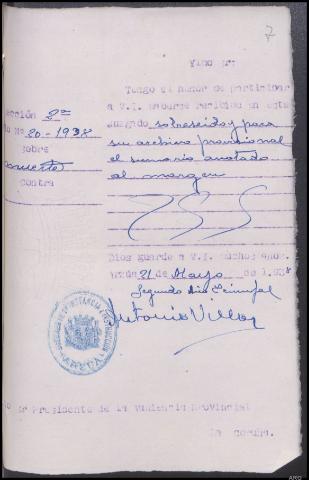 7
Ylmo Sr:
Tengo el honor de participar
a V.I. haberse recibido en este
Juzgado sobreseido y para
su archivo provisional
el sumario anotado
al margen
ección 2ª
Nº 20-1938
sobre
muerte
contra
Dios guarde a V.I. muchos años.
21 de Mayo de 1.938
Segundo Año Triunfal
Antonio Villar
ARZUA
Sr Presidente de la Audiencia Provincial
La Coruña.